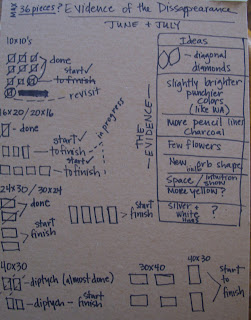 MAX 36 PIECES? Evidence of the Dissappearance
JUNE + JULY
10x10's
done
start ✓
to finish
revisit
16x20 / 20x16
- done
start ✓
to finish
start ✓
to finish
in progress
24x30 / 30x24
done
start
finish
start
finish
40x30
diptych (almost done)
diptych - start
finish
30x40
40x30
start
to
finish
THE EVIDENCE
Ideas
- diagonal
diamonds
slightly brighter
punchier
colors
(like WA)
More pencil lines
charcoal
Few flowers
New orb shape
Space / intuition
show
More yellow?
Silver +
white ?